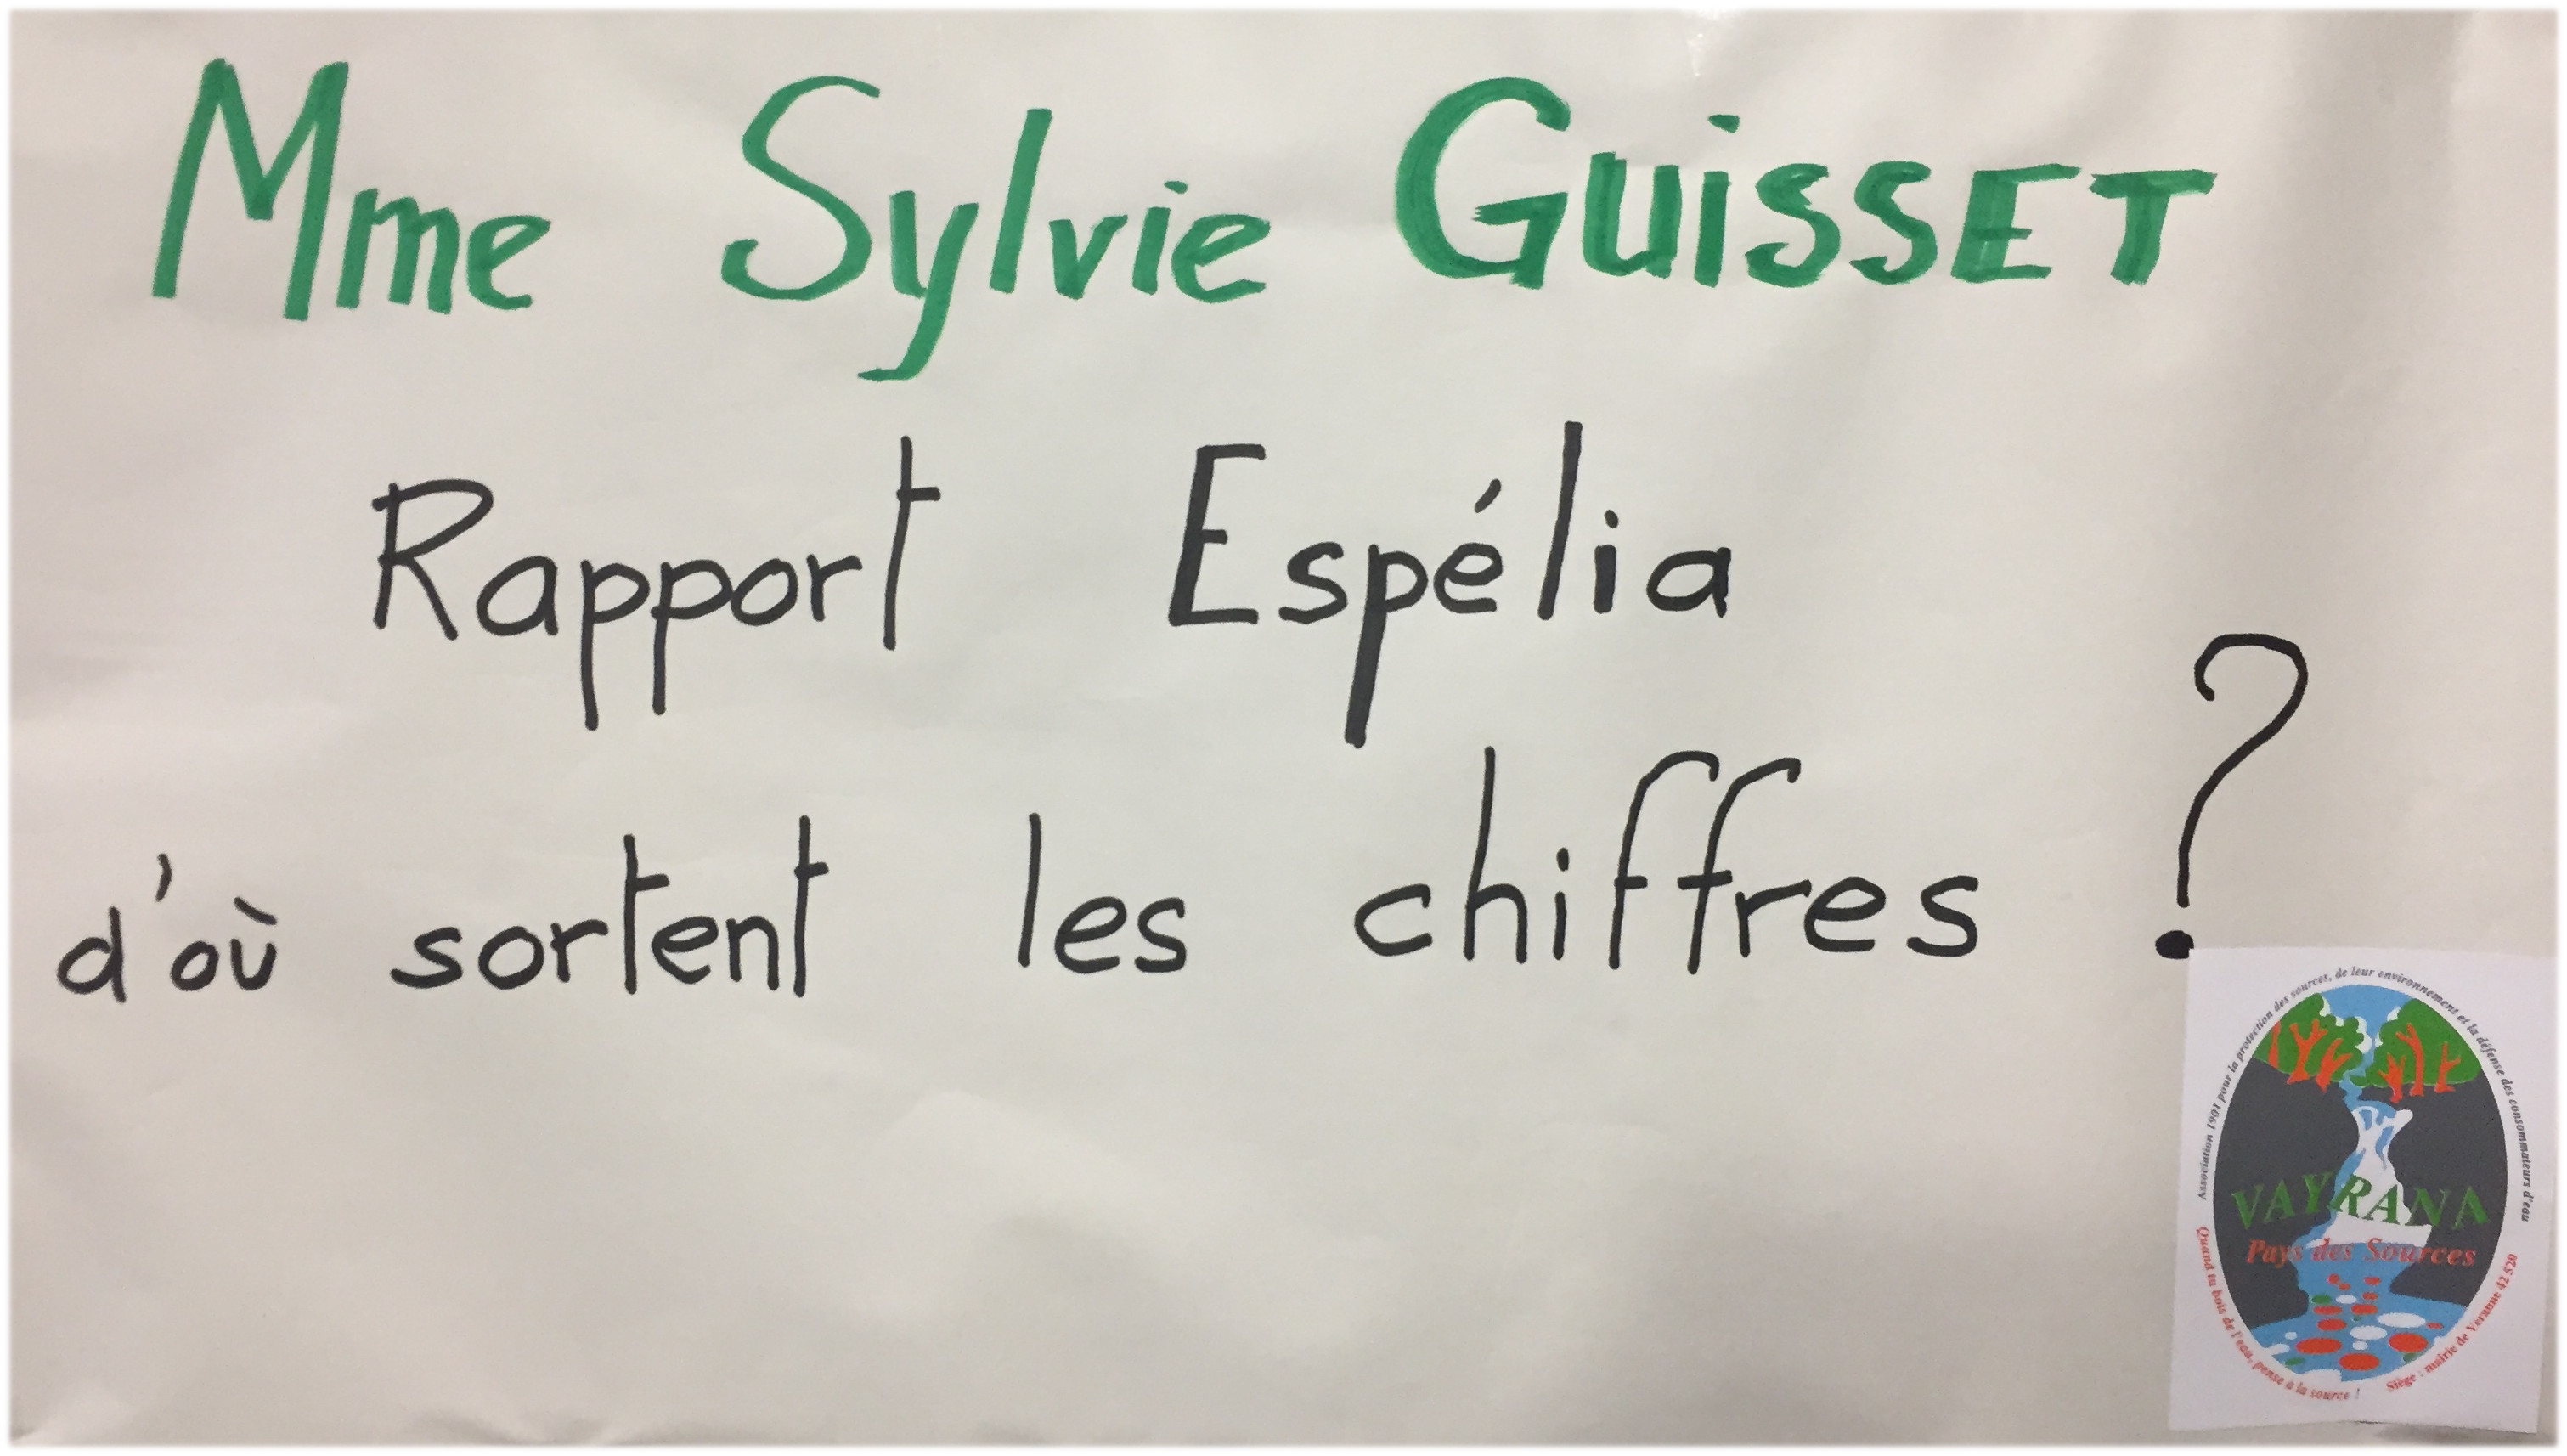 Mme Sylvie GUiSSET
Rapport Espélia
d'où sortent les chiffres ?
Association 1901 pour la protection des sources, de leur environnement et la défense des consommateurs d'eau
VAYRANA
Pays des Sources
Quand tu bois de l'eau, pense à la source !
Siège : mairie de Veranne 42 520